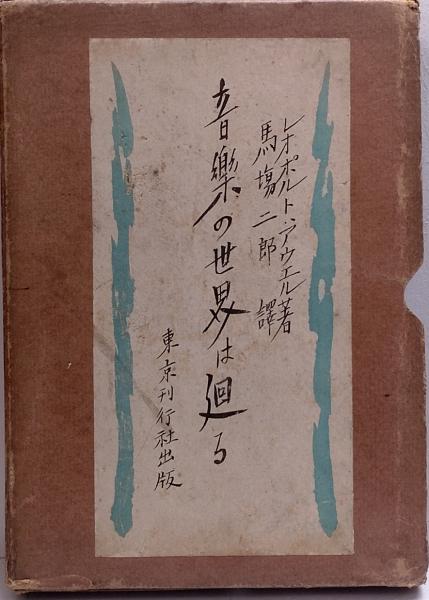 レオポルト・アウエル著
馬場二郎 譯
音樂の世界は廻る
東京刊行社出版